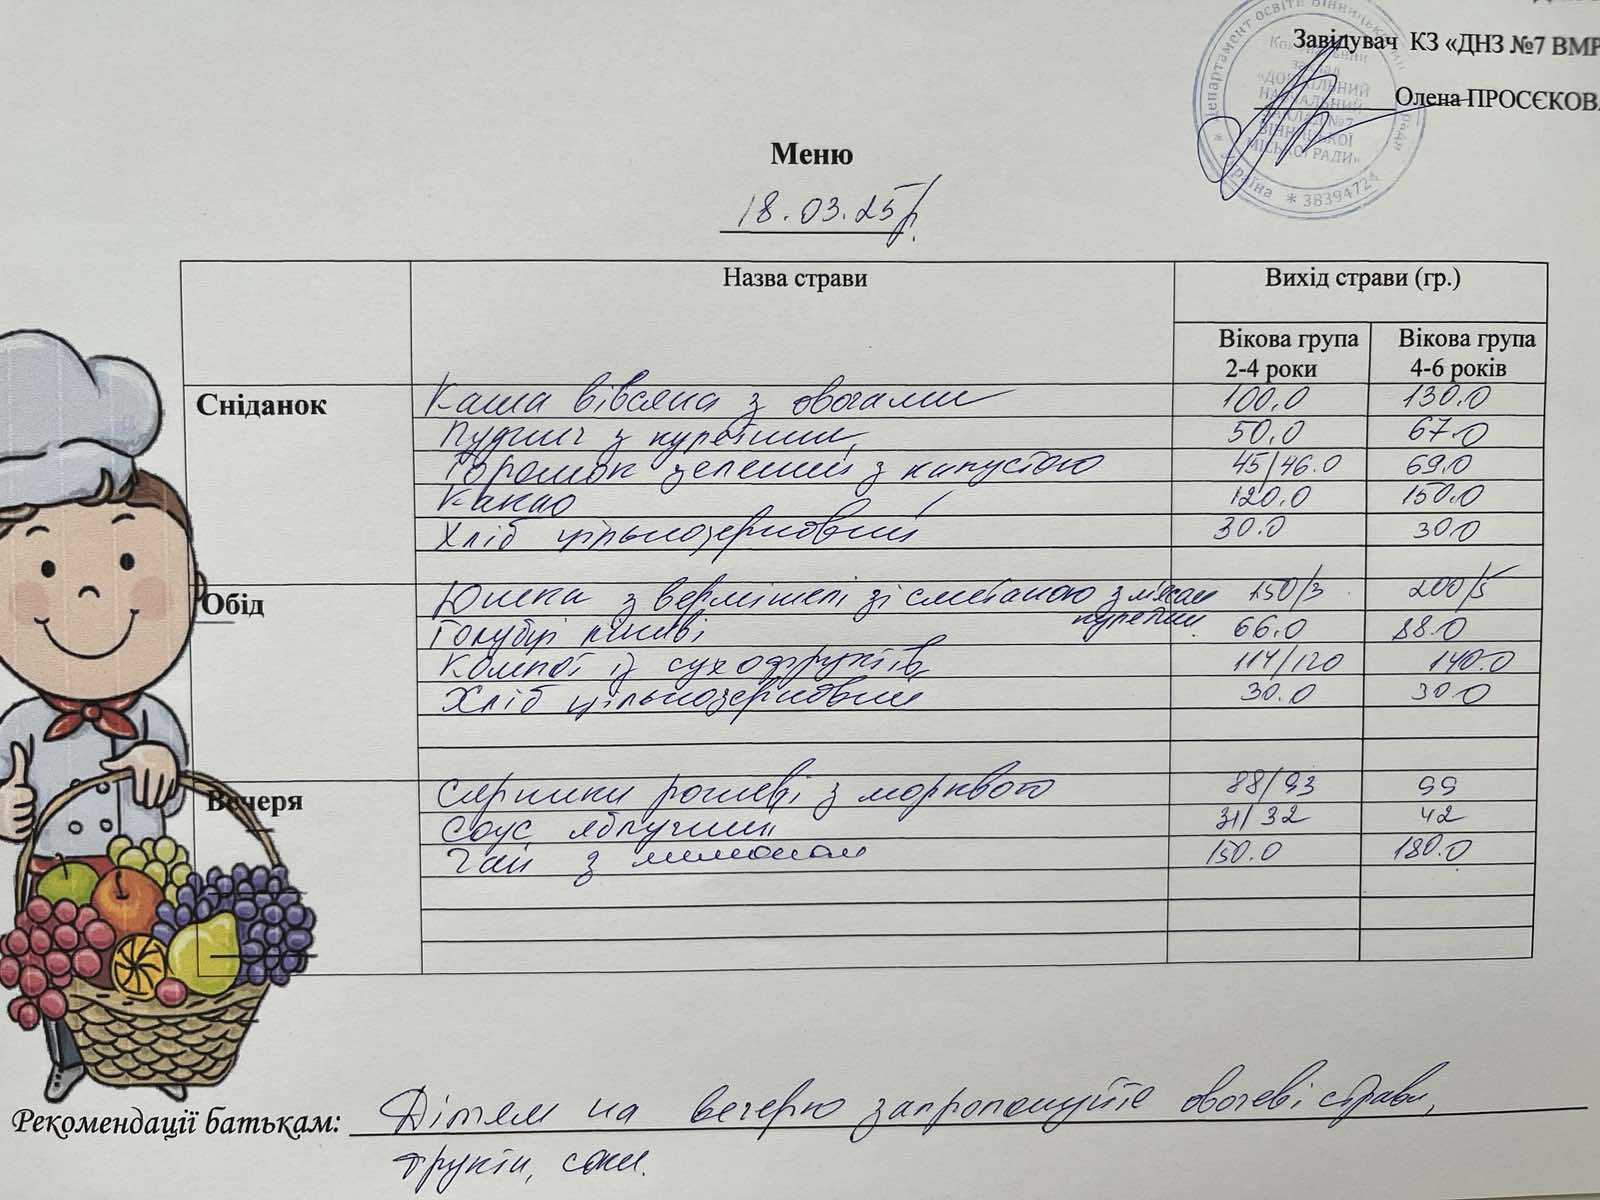 Завідувач КЗ «ДНЗ №7 ВМР
Олена ПРОСЄКОВА
Департамент освіти Вінницької
Комунальний
заклад
«ДОШКІЛЬНИЙ
НАВЧАЛЬНИЙ
ЗАКЛАД №7
ВІННИЦЬКОЇ
МІСЬКОЇ РАДИ»
Україна * 38394724
Меню
18.03.25р.
Назва страви Вихід страви (гр.)
Вікова група 2-4 роки Вікова група 4-6 років
Сніданок Каша вівсяна з овочами 100.0 130.0
Пудинг з 50.0 67.0
Горошок зелений з капустою 45/46.0 69.0
Какао 120.0 150.0
Хліб цільнозерновий 30.0 30.0
Обід Юшка з вермішелі зі сметаною з м'ясом 150/3 200/5
курячим
Голубці ліниві 66.0 88.0
Компот із сухофруктів 114/120 140.0
Хліб цільнозерновий 30.0 30.0
Вечеря Сирники рошеві з морквою 88/93 99
Соус яблучний 31/32 42
Чай з лимоном 150.0 180.0
Рекомендації батькам: Дітям на вечерю запропонуйте овочеві страви,
фрукти, соки.